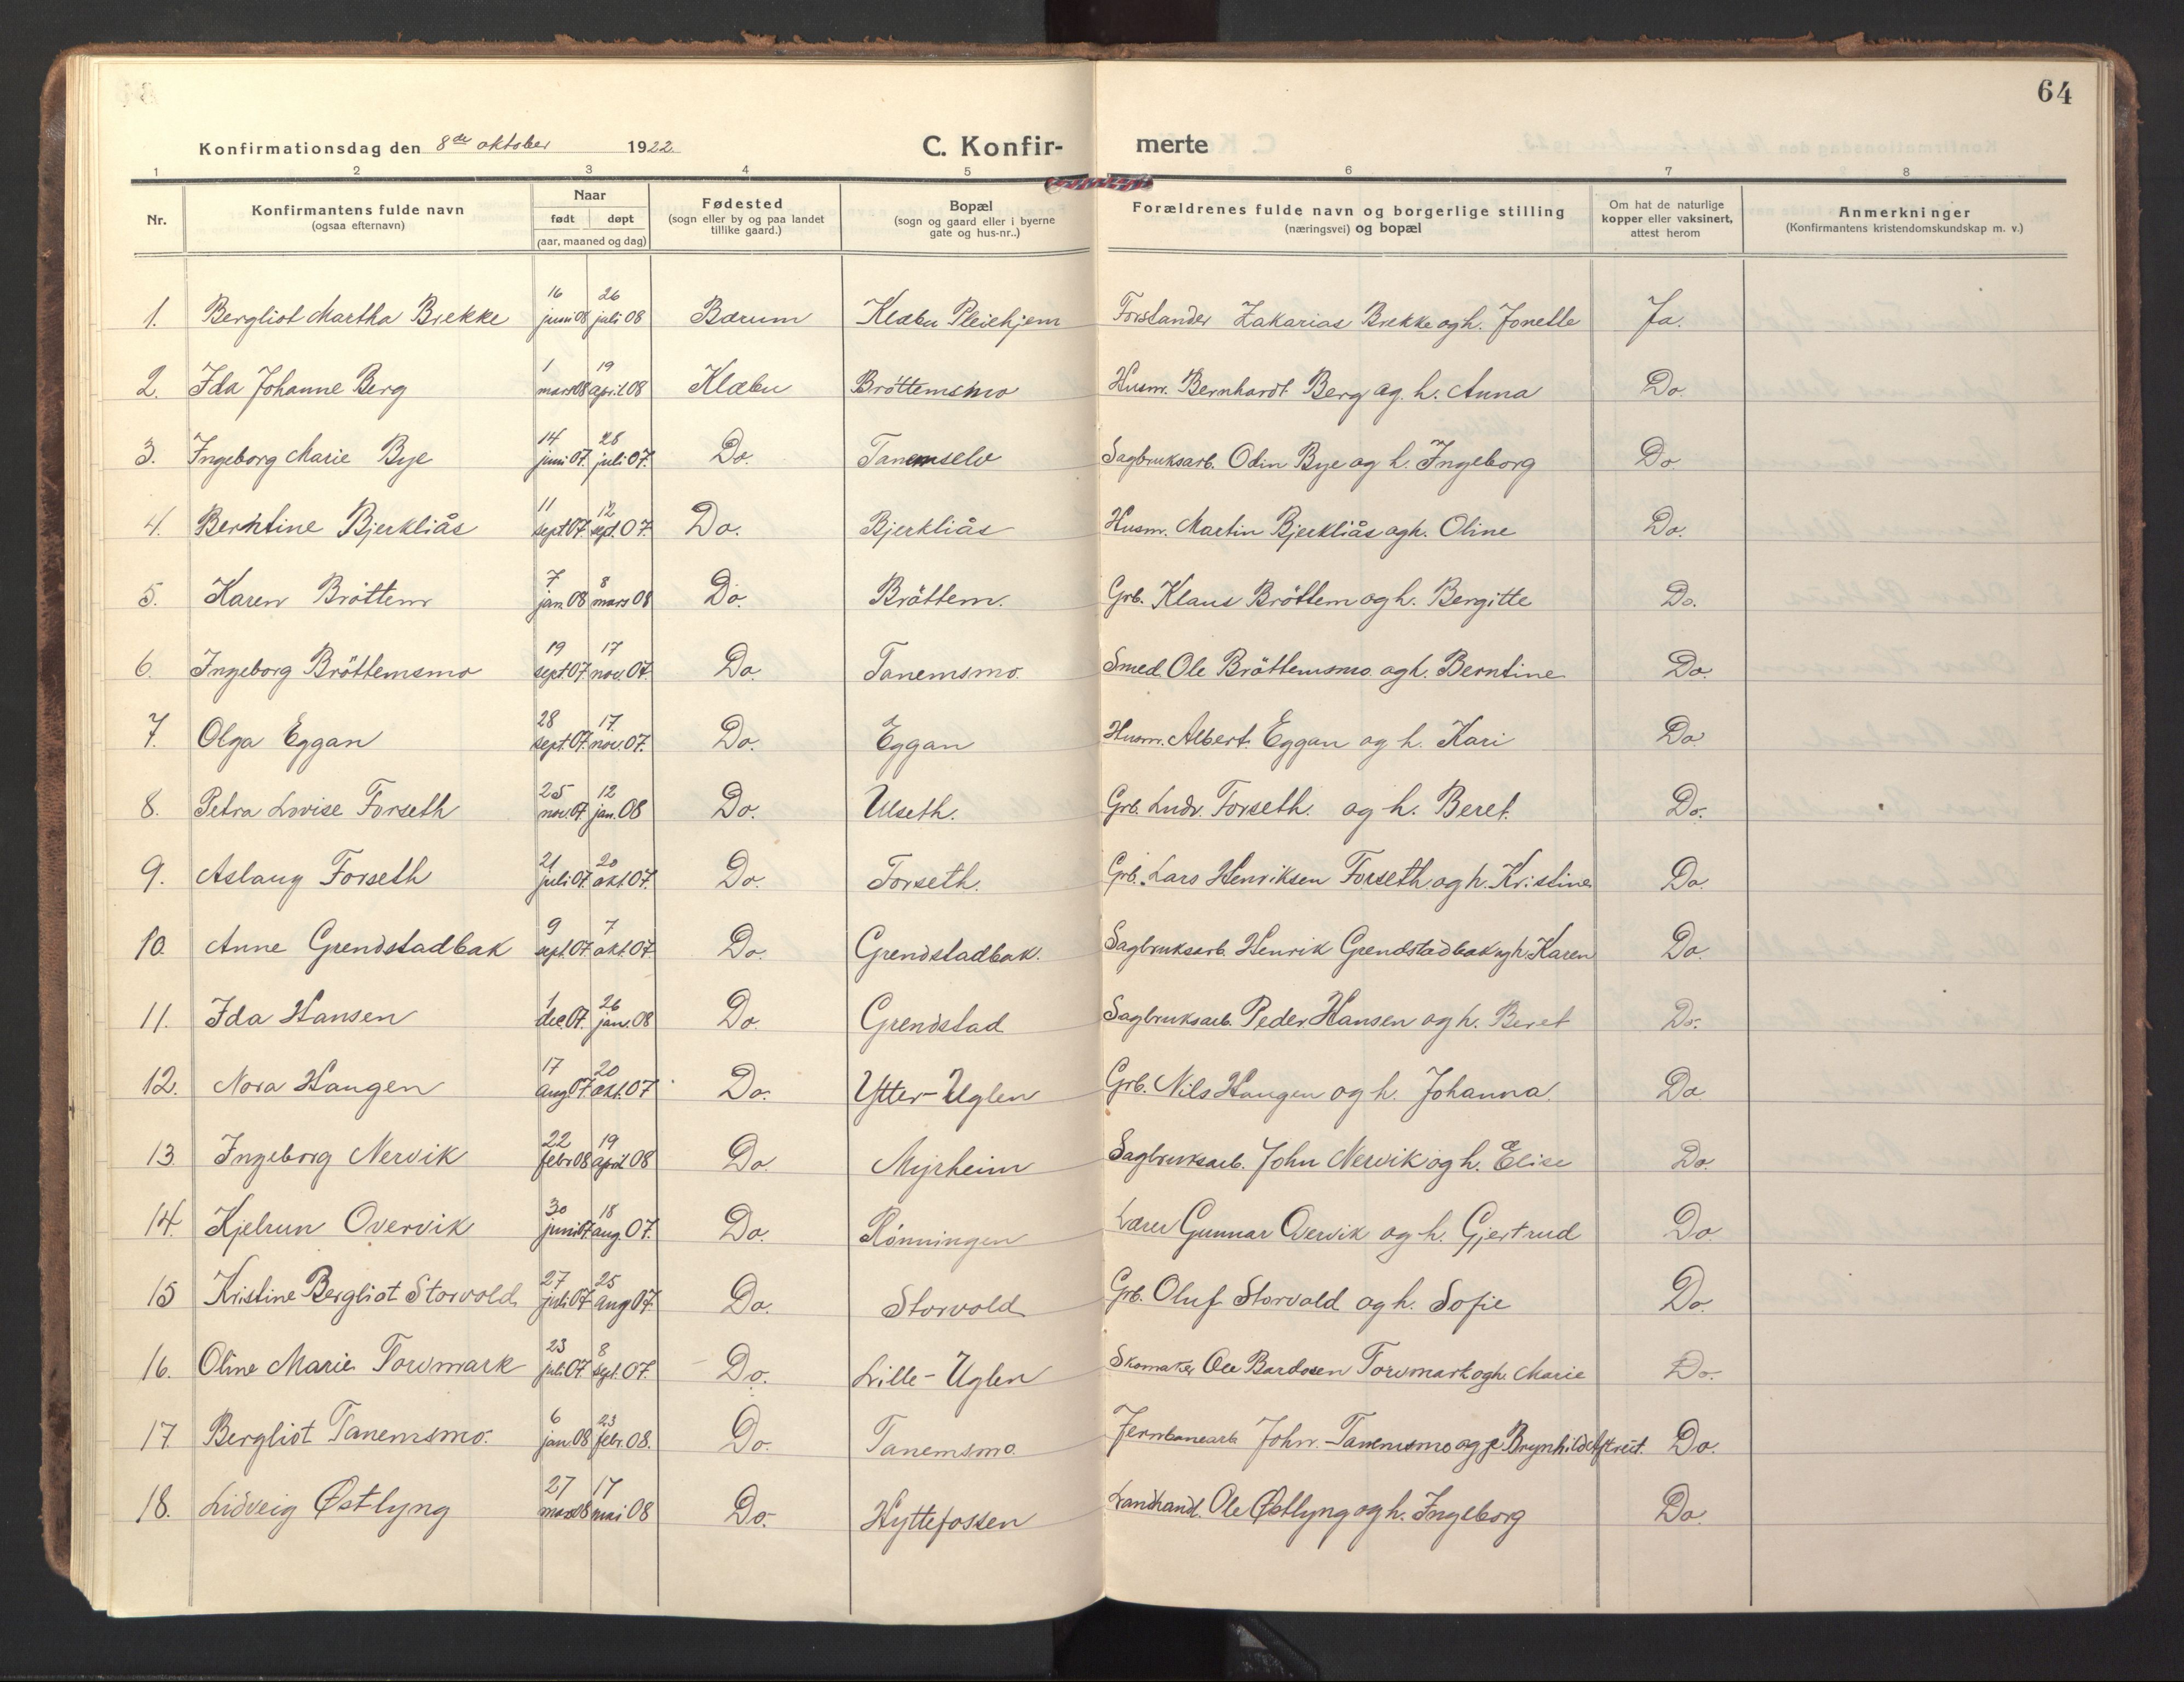 64
Konfirmationsdag den 8de oktober 1922 C. Konfir- merte
1 2 3 4 5 6 7 8
Nr. Konfirmantens fulde navn (ogsaa efternavn) Naar født døpt (aar, maaned og dag) Fødested (sogn eller by og paa landet tillike gaard.) Bopæl (sogn og gaard eller i byerne gate og hus-nr..) Forældrenes fulde navn og borgerlige stilling (næringsvei) og bopæl Om hat de naturlige kopper eller vaksinert, attest herom Anmerkninger (Konfirmantens kristendomskundskap m. v.)
1. Bergliot Martha Brekke 16 juni 08 26 juli 08 Bærum Klæbu Pleiehjem Forstander Zakarias Brekke og h. Jonette Ja.
2. Ida Johanne Berg 1 mars 08 19 april 08 Klæbu Bröttemsmo Husm. Bernhardt Berg og h. Anna Do.
3. Ingeborg Marie Bye 14 juni 07. 28 juli 07. Do. Tanemselv Sagbruksarb. Odin Bye og h. Ingeborg Do.
4. Berntine Bjerkliås 11 sept. 07. 12 sept. 07. Do. Bjerkliås Husm. Martin Bjerkliås og h. Oline Do.
5. Karen Bröttem 7 jan 08 8 mars 08 Do. Bröttem. Grb. Klaus Bröttem og h. Bergitte Do.
6. Ingeborg Bröttemsmo 19 sept. 07 17 nov. 07. Do. Tanemsmo. Smed Ole Bröttemsmo og h. Berntine Do.
7. Olga Eggan 28 sept. 07. 17 nov. 07. Do. Eggan Husm. Albert Eggan og h. Kari Do.
8. Petra Lovise Forseth 25 nov. 07 12 jan. 08 Do. Ulseth. Grb. Ludv. Forseth. og h. Beret. Do.
9. Aslaug Forseth 21 juli 07. 20 okt. 07. Do. Forseth. Grb. Lars Henriksen Forseth og h. Kristine Do.
10. Anne Grendstadbak 9 sept. 07. 7 okt. 07. Do. Grendstadbak. Sagbruksarb. Henrik Grendstadbak og h. Karen Do.
11. Ida Hansen 1 dec. 07. 26 jan. 08 Do. Grendstad Sagbruksarb. Peder Hansen og h. Beret Do.
12. Nora Haugen 17 aug 07. 20 okt. 07 Do. Ytter-Uglen Grb. Nils Haugen og h. Johanna. Do.
13. Ingeborg Nervik 22 febr 08 19 april 08 Do. Myrheim Sagbruksarb. John Nervik og h. Elise Do.
14. Kjelrun Overvik 30 juni 07. 18 aug. 07. Do. Rönningen Lærer Gunnar Overvik og h. Gjertrud Do.
15 Kristine Bergliot Storvold 27 juli 07 25 aug 07. Do. Storvold Grb. Oluf Storvold og h. Sofie Do.
16. Oline Marie Torvmark 23 juli 07 8 sept. 07. Do. Lille-Uglen Skomaker Ole Bardosen Torvmark og h. Marie Do.
17. Bergliot Tanemsmo. 6 jan. 08 23 febr. 08. Do. Tanemsmo. Jernbanearb. John Tanemsmo og Brynhild Do.
18. Lidveig Østlyng 27 mars 08 17 mai 08 Do. Hyttefossen Landhandl. Ole Østlyng og h. Ingeborg Do.